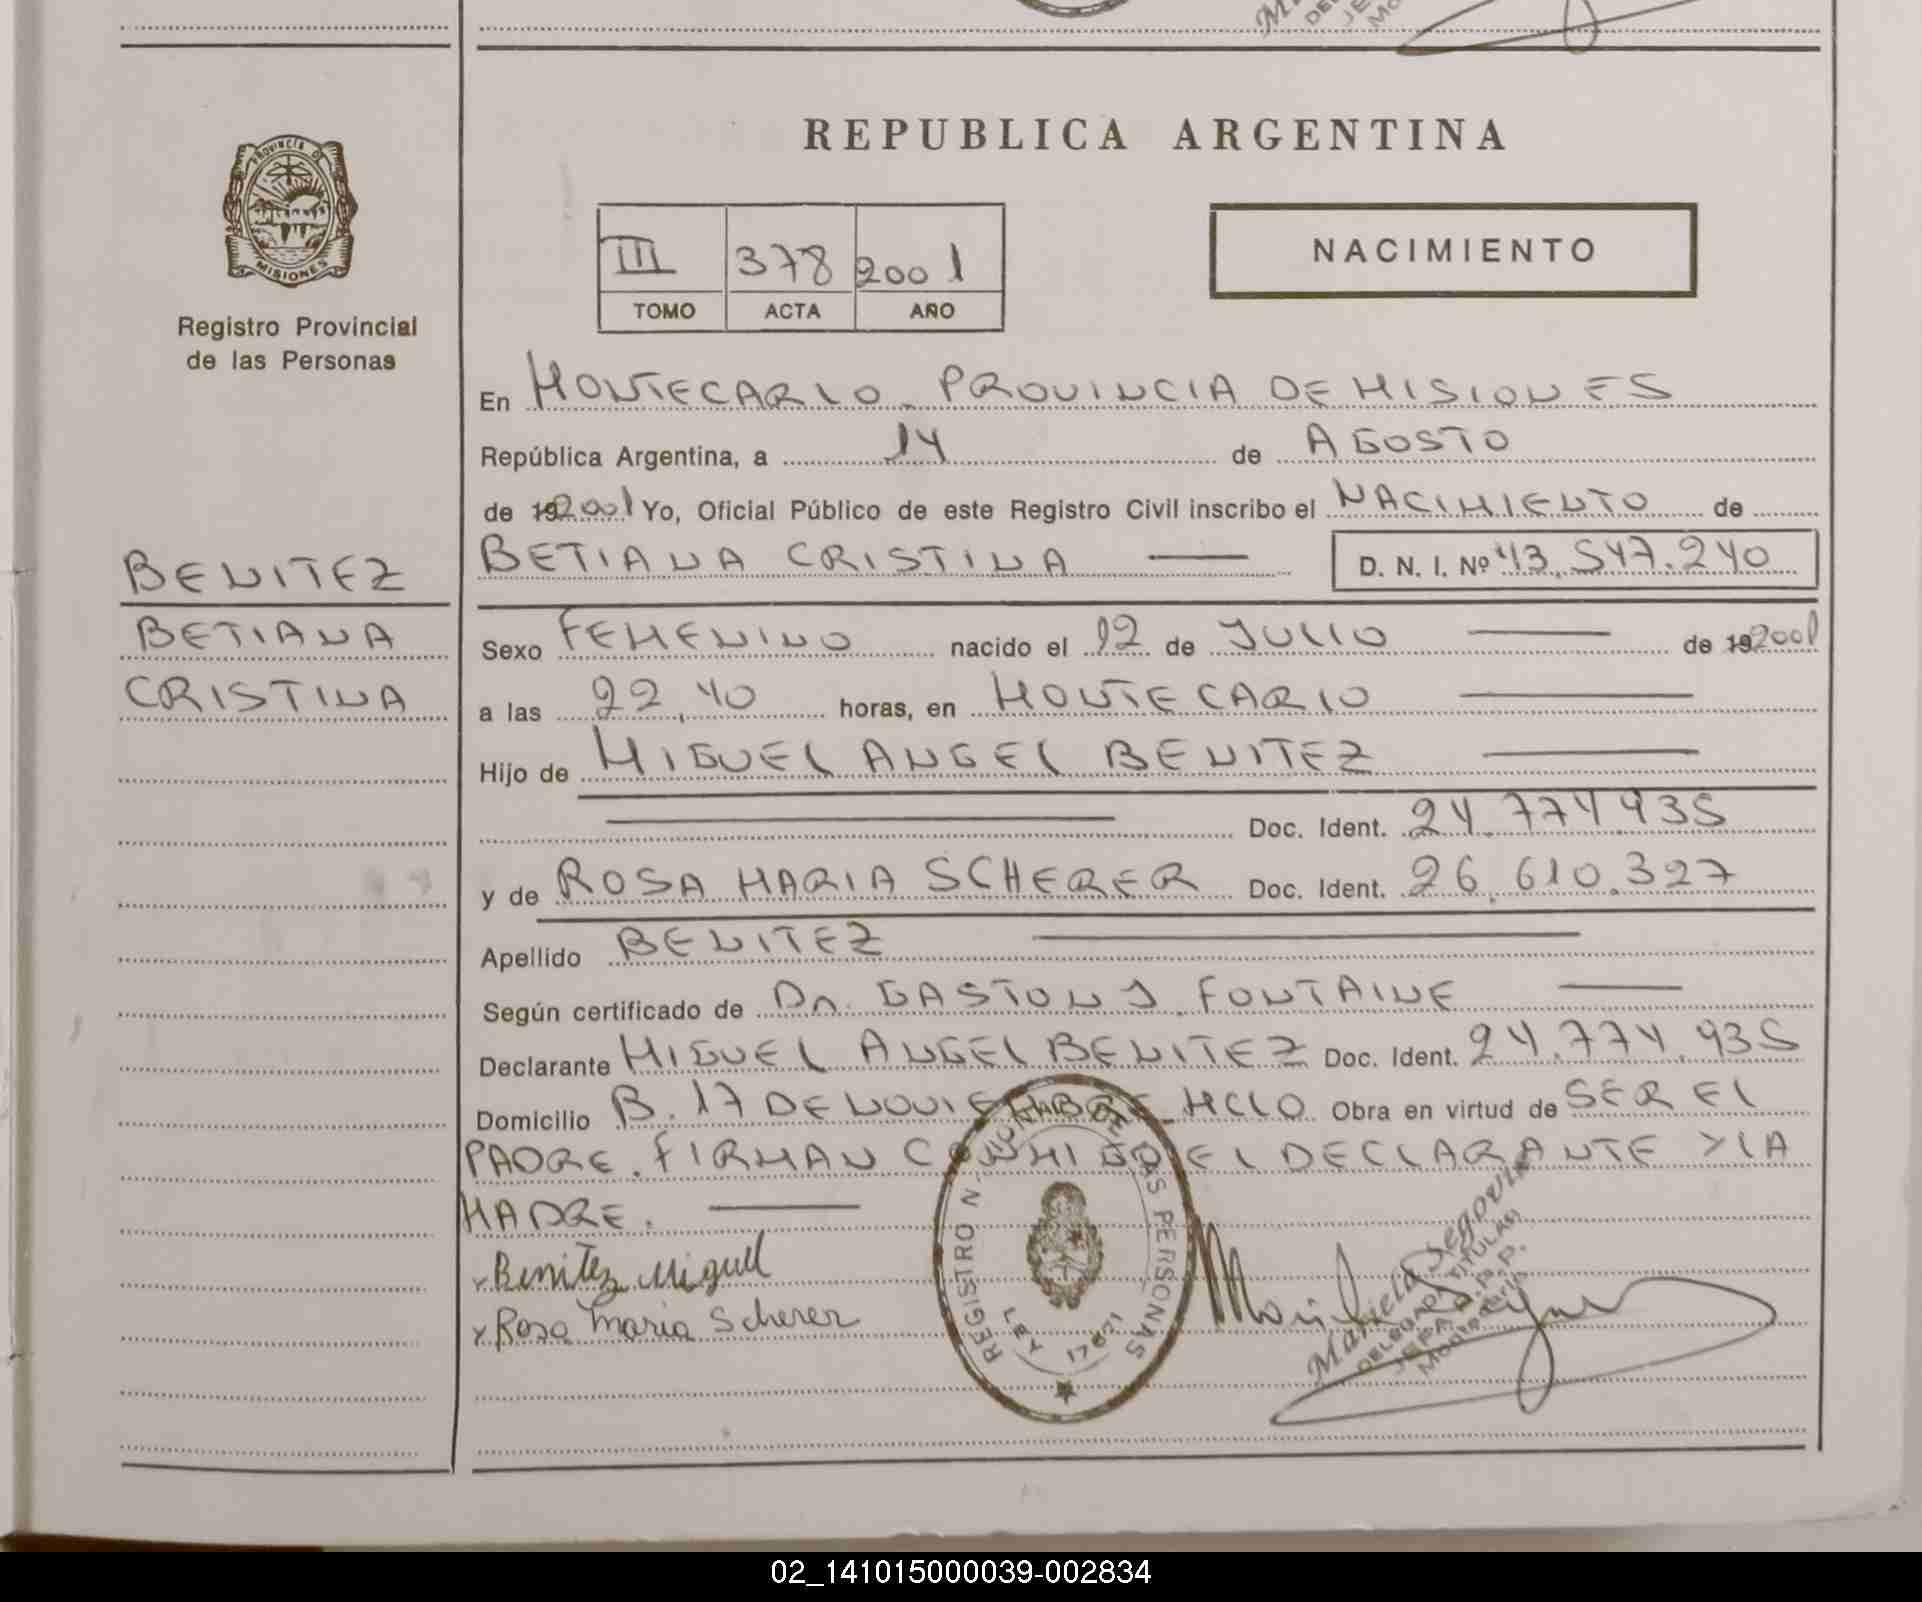 REPUBLICA ARGENTINA
PROVINCIA DE
MISIONES
Registro Provincial
de las Personas
III 378 2001
TOMO ACTA AÑO
NACIMIENTO
En MONTECARLO. PROVINCIA DE MISIONES
República Argentina, a 14 de AGOSTO
de 19 2001 Yo, Oficial Público de este Registro Civil inscribo el NACIMIENTO de
BENITEZ
BETIANA
CRISTINA
BETIANA CRISTINA D. N. I. Nº 43.547.240
Sexo FEMENINO nacido el 12 de JULIO de 19 2001
a las 22,40 horas, en MONTECARLO
Hijo de MIGUEL ANGEL BENITEZ
Doc. Ident. 24.774935
y de ROSA MARIA SCHERER Doc. Ident. 26.610.327
Apellido BENITEZ
Según certificado de Dr. GASTON J. FONTAINE
Declarante MIGUEL ANGEL BENITEZ Doc. Ident. 24.774.935
Domicilio B. 17 DE NOVIEMBRE - MCLO Obra en virtud de SER EL
PADRE. FIRMAN CONMIGO EL DECLARANTE Y LA
MADRE.
x Benitez Miguel
x Rosa Maria Scherer
REGISTRO NACIONAL DE LAS PERSONAS
LEY 17671
Mariela Segovia
DELEGADA TITULAR
J.E.P.A. R.P.P.
Montecarlo
02_141015000039-002834